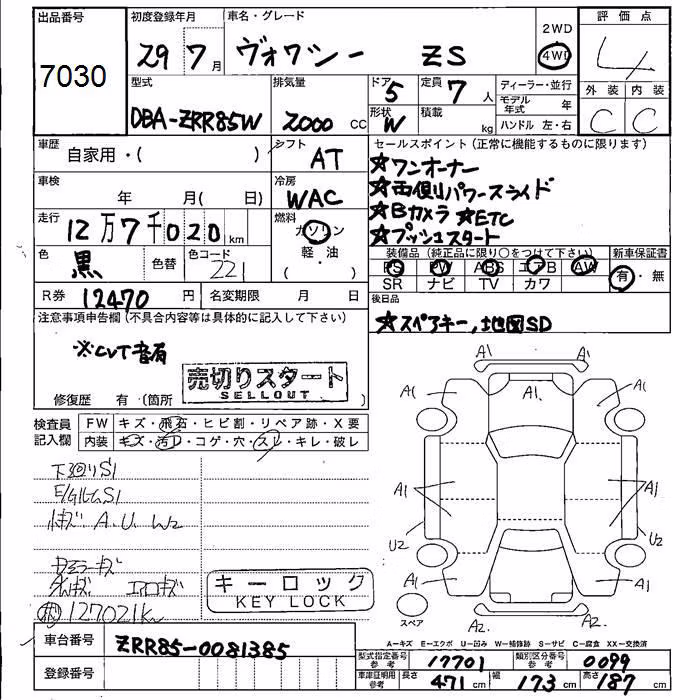 出品番号 7030
初度登録年月 29 7月
車名・グレード ヴォクシー ZS
2WD
4WD
評価点 4
外装 内装
C C
型式 DBA-ZRR85W
排気量 2000 CC
ドア 5
形状 W
定員 7 人
積載 kg
ディーラー・並行
モデル年式 年
ハンドル 左・右
車歴 自家用・( )
シフト AT
車検 年 月( 日)
冷房 WAC
走行 12万7千020km
燃料 ガソリン
軽・油
( )
色 黒 色替
色コード 221
R券 12470円
名変期限 月 日
セールスポイント(正常に機能するものに限ります)
★ワンオーナー
★両側パワースライド
★Bカメラ ★ETC
★プッシュスタート
装備品(純正品に限り○をつけて下さい)
PS PW ABS エアB AW
SR ナビ TV カワ
新車保証書
有・無
後日品
★スペアキー,地図SD
注意事項申告欄(不具合内容等は具体的に記入して下さい)
※CVT音有
売切りスタート
SELLOUT
修復歴 有(箇所 )
検査員記入欄
FW キズ・飛石・ヒビ割・リペア跡・X要
内装 キズ・汚レ・コゲ・穴・スレ・キレ・破レ
下廻りS1
E/GルームS1
A.U.W2
エアロキズ
127021km
キーロック
KEY LOCK
A1 A1
A1 A1 A1
A1 A1
U2 U2
A1 A1
A2 A2
スペア
A-キズ E-エクボ U-凹み W-補修跡 S-サビ C-腐食 XX-交換済
車台番号 ZRR85-0081385
登録番号
型式指定番号 参考 17701
類別区分番号 参考 0099
車庫証明用参考 長さ 471cm 幅 173cm 高さ 187cm